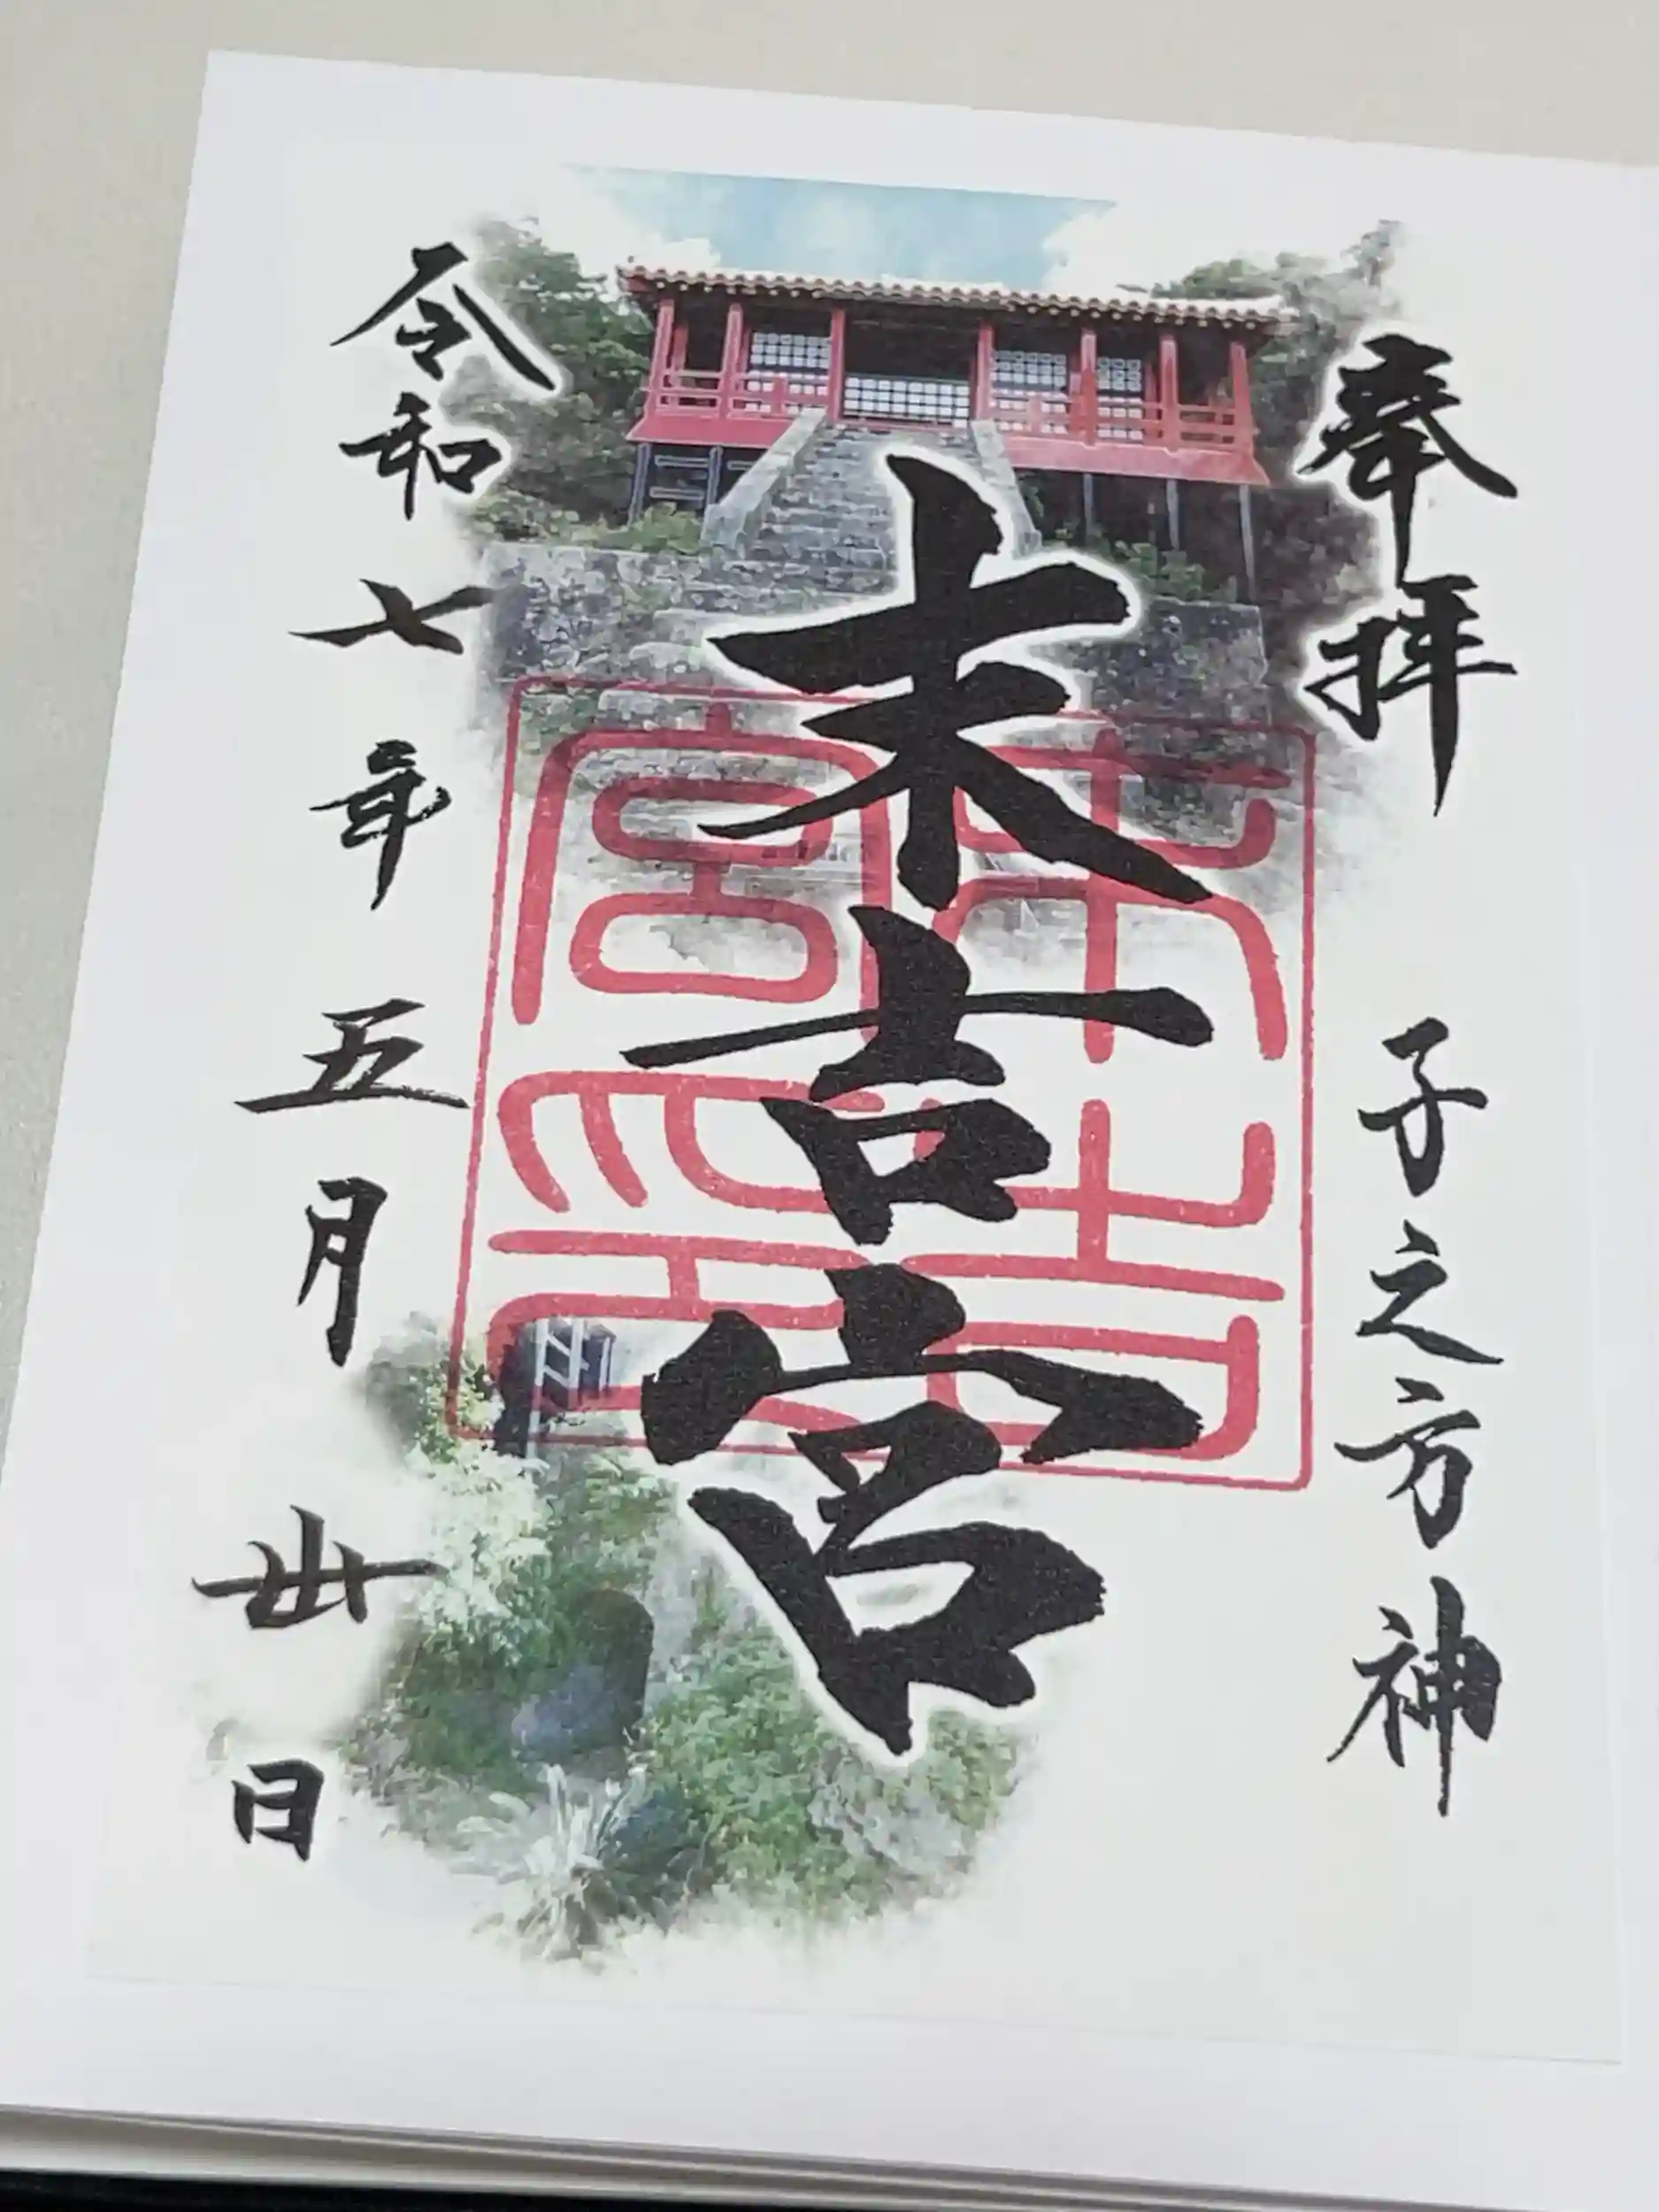 奉拝 子之方神
末吉宮
末吉宮印
令和七年五月丗日